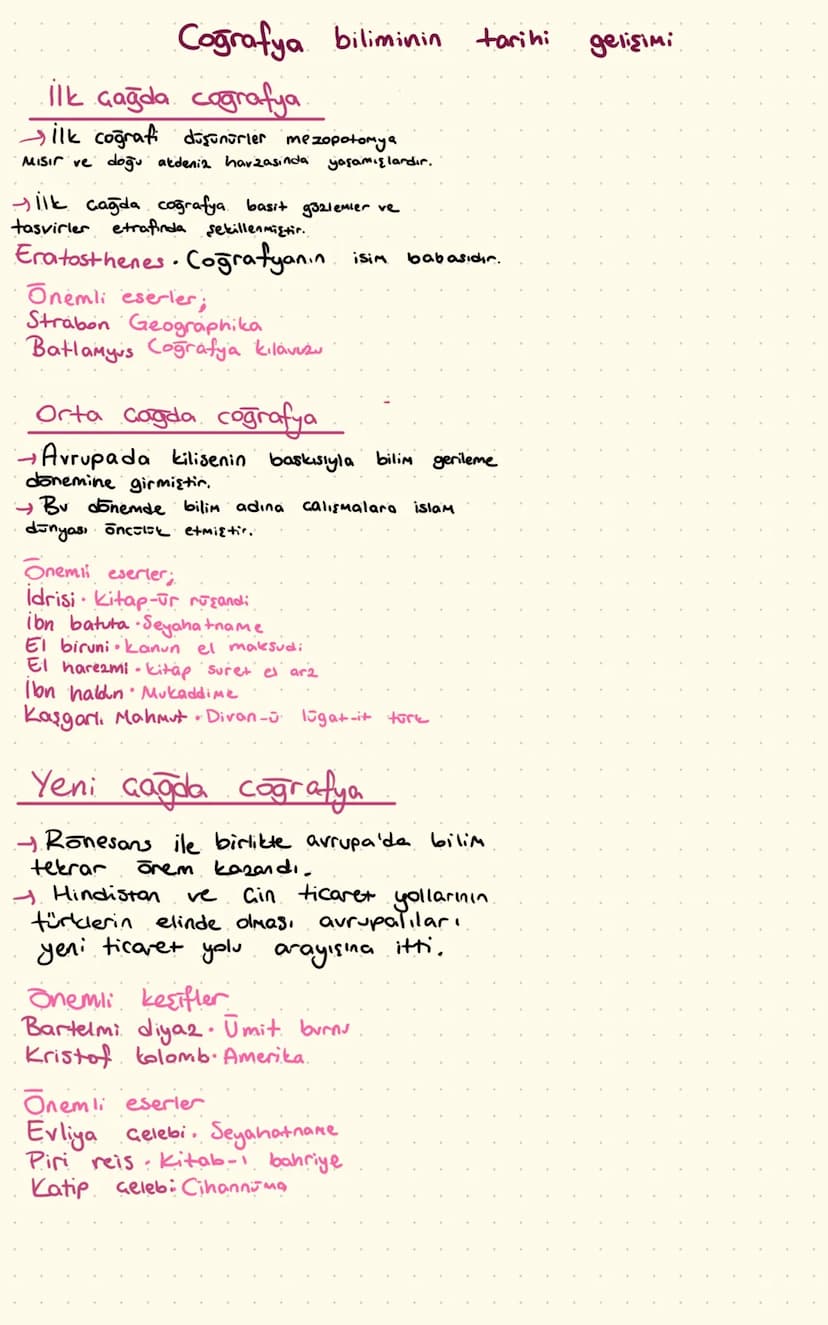 Coğrafya biliminin tarihi gelişimi
İlk çağda coğrafya
→ İlk coğrafi düşünürler mezopotomya
Mısır ve doğu akdeniz havzasında yaşamışlardır.
→ İlk çağda coğrafya basit gözlemler ve
tasvirler etrafında şekillenmiştir.
Eratosthenes • Coğrafyanın isim babasıdır.
Önemli eserler;
Strabon Geographika
Batlamyus Coğrafya kılavuzu
Orta çağda coğrafya
→ Avrupada kilisenin baskısıyla bilim gerileme
dönemine girmiştir.
→ Bu dönemde bilim adına calışmalara islam
dünyası öncülük etmiştir.
Önemli eserler;
İdrisi • Kitap-ür rüşandi
ibn batuta • Seyahatname
El biruni • kanun el maksudi
El harezmi • kitap suret el arz
İbn haldun • Mukaddime
Kaşgarlı Mahmut • Divan-ü lügat-it türk
Yeni çağda coğrafya
→ Rönesans ile birlikte avrupa'da bilim
tekrar önem kazandı.
→ Hindistan ve Çin ticaret yollarının
türklerin elinde olması avrupalıları
yeni ticaret yolu arayışına itti.
Önemli keşifler
Bartelmi diyaz • Ümit burnu
Kristof kolomb • Amerika
Önemli eserler
Evliya çelebi • Seyahatname
Piri reis • Kitab-ı bahriye
Katip çelebi : Cihannüma